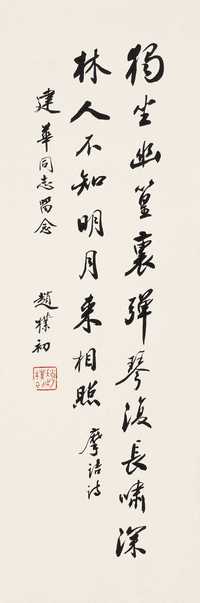 獨坐幽篁裏彈琴復長嘯深
林人不知明月來相照 摩詰詩
建華同志留念
趙樸初